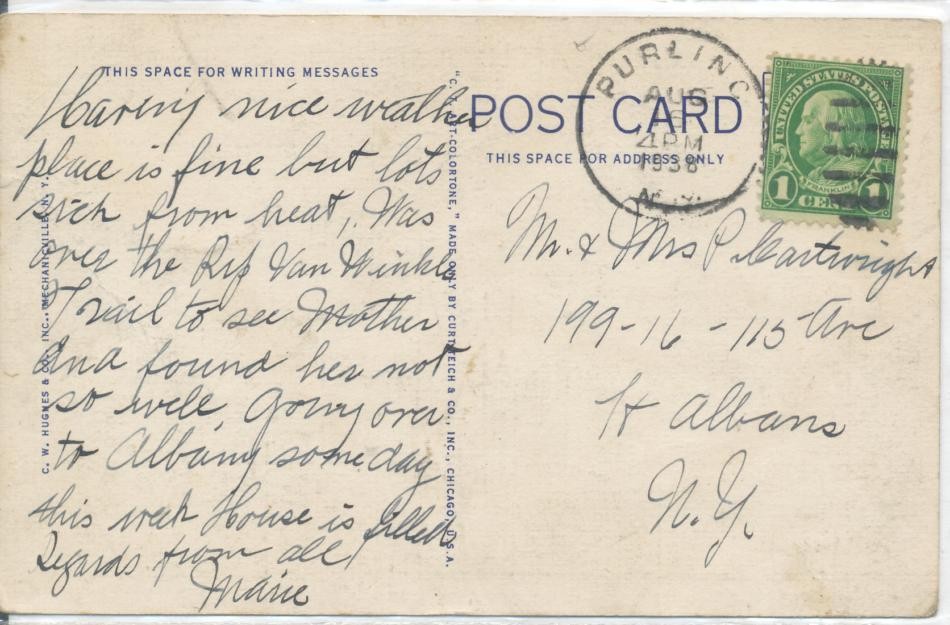 THIS SPACE FOR WRITING MESSAGES
Having nice weather
place is fine but lots
sick from heat, Was
over the Rip Van Winkle
Trail to see Mother
And found her not
so well Going over
to Albany some day
this week House is filled
Regards from all
Marie
C. W. HUGHES & CO., INC., MECHANICVILLE, N. Y.
"C. T. ART-COLORTONE," MADE ONLY BY CURT TEICH & CO., INC., CHICAGO, U.S.A.
POST CARD
THIS SPACE FOR ADDRESS ONLY
PURLING
AUG
4 PM
1938
N.Y.
UNITED STATES POSTAGE
FRANKLIN
1 CENT 1
Mr. & Mrs P. Cartwright
199-16-115 Ave
St Albans
N.Y.